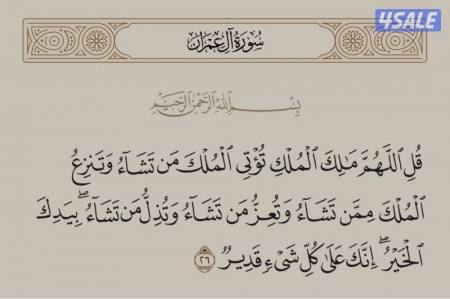 4SALE
سُورَةُ آلِ عِمْرَانَ
بِسْمِ اللَّهِ الرَّحْمَٰنِ الرَّحِيمِ
قُلِ اللَّهُمَّ مَالِكَ الْمُلْكِ تُؤْتِي الْمُلْكَ مَن تَشَاءُ وَتَنزِعُ
الْمُلْكَ مِمَّن تَشَاءُ وَتُعِزُّ مَن تَشَاءُ وَتُذِلُّ مَن تَشَاءُ ۖ بِيَدِكَ
الْخَيْرُ ۖ إِنَّكَ عَلَىٰ كُلِّ شَيْءٍ قَدِيرٌ ٢٦